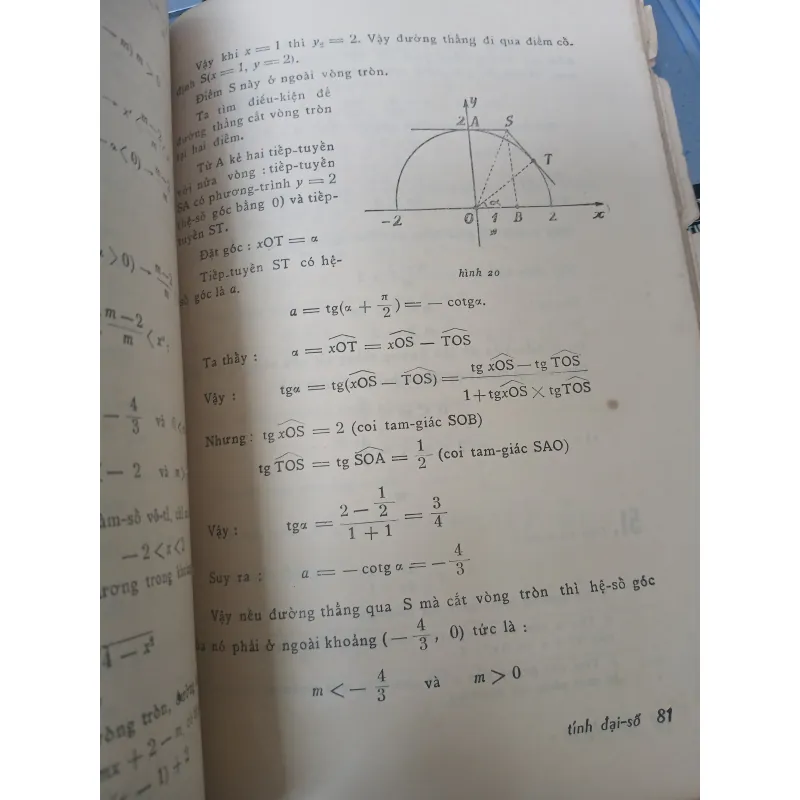 Vậy khi x = 1 thì y₀ = 2. Vậy đường thẳng đi qua điểm cố-
định S(x = 1, y = 2).
Điểm S này ở ngoài vòng tròn.
Ta tìm điều-kiện để
đường thẳng cắt vòng tròn
tại hai điểm.
Từ A kẻ hai tiếp-tuyến
với nửa vòng : tiếp-tuyến
SA có phương-trình y = 2
(hệ-số góc bằng 0) và tiếp-
tuyến ST.
Đặt góc : xOT = α
Tiếp-tuyến ST có hệ-
số góc là a.
y
2 A S
T
α
-2 O 1 B 2 x
hình 20
a = tg(α + π/2) = — cotgα.
Ta thấy : α = xOT = xOS — TOS
Vậy : tgα = tg(xOS — TOS) = (tg xOS — tg TOS)/(1 + tgxOS × tgTOS)
Nhưng : tg xOS = 2 (coi tam-giác SOB)
tg TOS = tg SOA = 1/2 (coi tam-giác SAO)
Vậy : tgα = (2 — 1/2)/(1 + 1) = 3/4
Suy ra : a = — cotg α = — 4/3
Vậy nếu đường thẳng qua S mà cắt vòng tròn thì hệ-số góc
của nó phải ở ngoài khoảng (— 4/3, 0) tức là :
m < — 4/3 và m > 0
tính đại-số 81